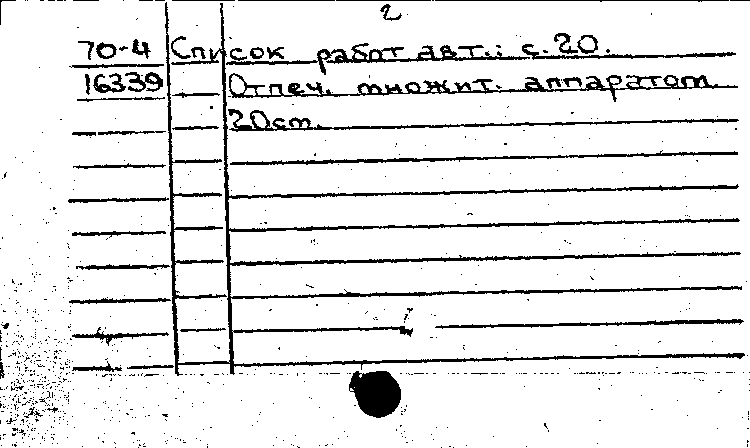 2
70-4 Список работ авт.: с.20.
16339 Отпеч. множит. аппаратом.
20см.